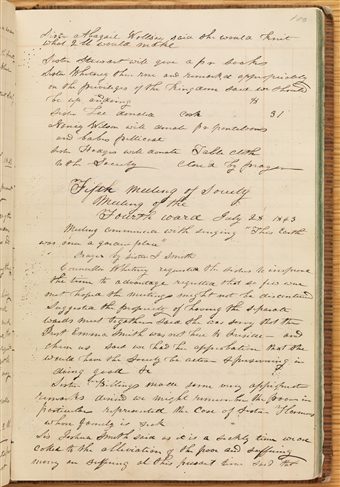 Sister Abagail Wollsey said she would knit
what I M would make
Sister Stewart will give a pr socks
Sister Whitney then rose and remarked appropriately
on the privileges of the Kingdom said we should
be up and doing
Sister Lee donated cash 31
Nancy Wilson will donate
Sister Frague will donate Table cloth
to the Society Closed by prayer
Fifth meeting of Society
Meeting of the
Fourth ward July 28 1843
Meeting commenced with singing "This Earth
was once a garden place"
Prayer by Sister J Smith
Councillor Whitney requested the sisters to improve
the time to advantage regretted that so few were
out hoped the meetings might not be discontinued
Suggested the propriety of having the separate
wards meet together said she was sorry that the
Prest Emma Smith was not here to Preside and
cheer us said we had her approbation that she
would have the Society be active & persevering in
doing good &c
Sister Billings made some very appropriate
remarks desired we might remember the poor in
particular represented the case of Sister
whose family is sick
Sis Joshua Smith said as it is a sickly time we are
called to the alleviation of the poor and suffering
many are suffering at this present time said that